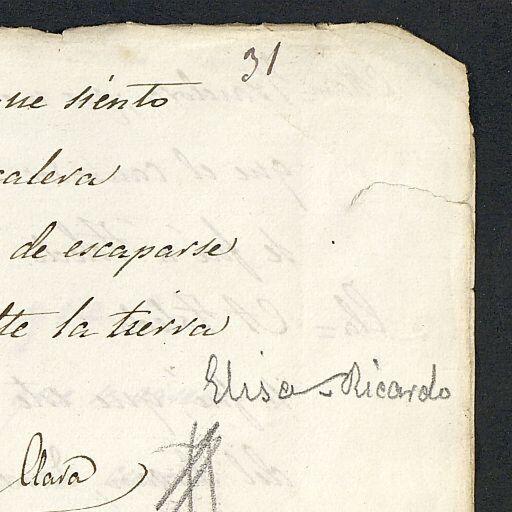 31
ue siento
calera
de escaparse
te la tierra
Elisa - Ricardo
Clara